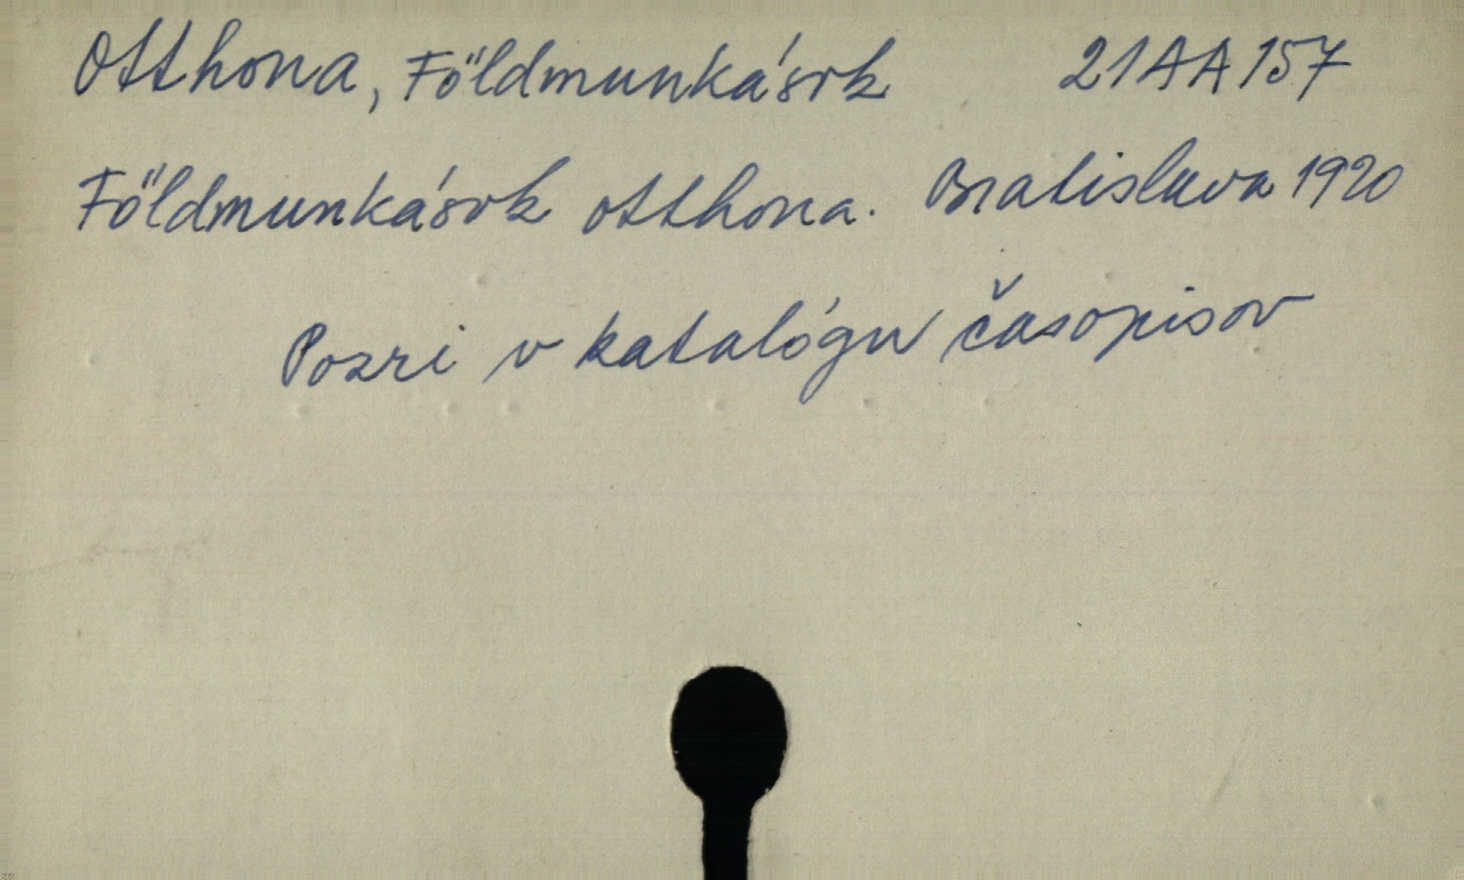 Otthona, Földmunkások 21AA157
Földmunkások otthona. Bratislava 1920
Pozri v katalógu časopisov